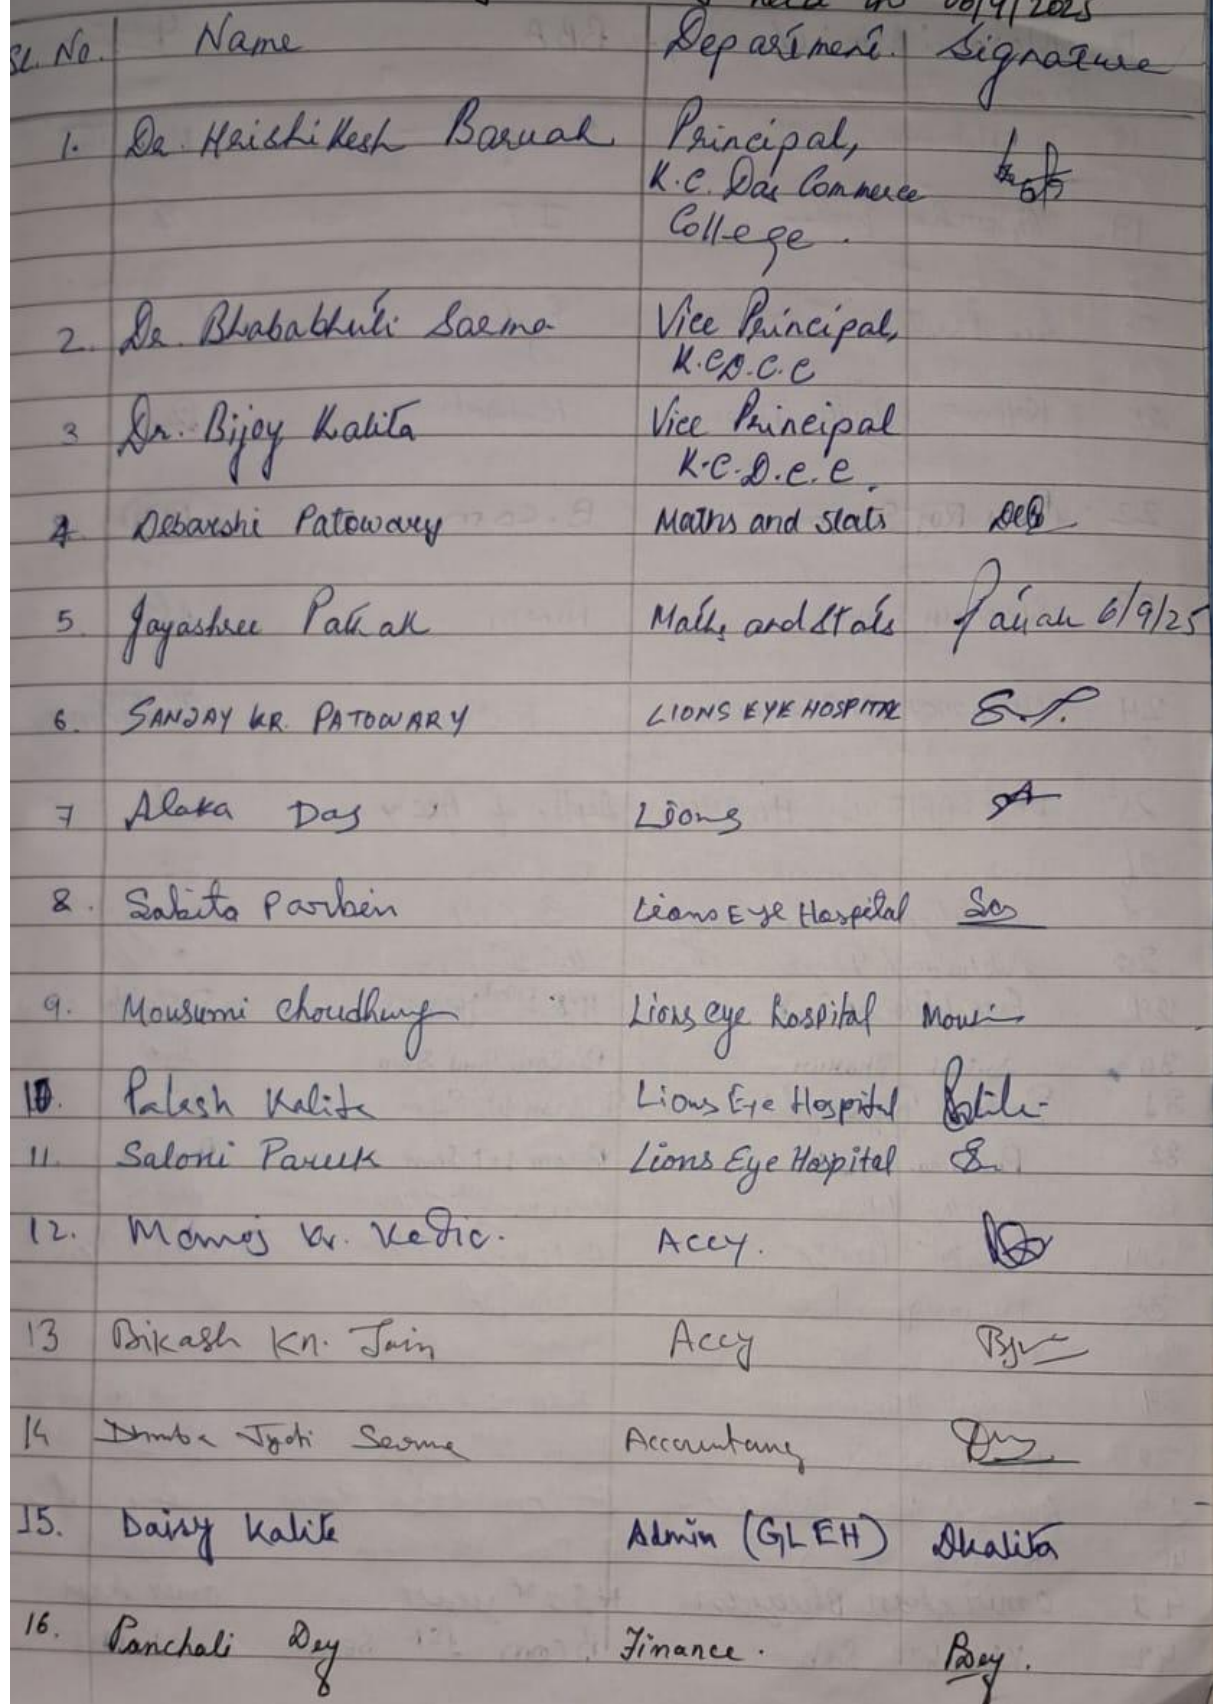 held on 06/9/2025
Sl. No. Name Department Signature
1. Dr. Hrishikesh Baruah Principal,
K.C. Das Commerce
College.
2. Dr. Bhababhuti Sarma Vice Principal,
K.C.D.C.C
3 Dr. Bijoy Kalita Vice Principal
K.C.D.C.C.
4. Debarshi Patowary Maths and Stats Deb
5. Jayashree Pathak Maths and Stats Pathak 6/9/25
6. SANJAY KR. PATOWARY LIONS EYE HOSPITAL S.P.
7 Alaka Das Lions
8. Sabita Parbin Lions Eye Hospital
9. Mousumi Choudhury Lions eye hospital
10. Palash Kalita Lions Eye Hospital
11. Saloni Pareek Lions Eye Hospital S.
12. Manoj Kr. Kedia. Accy.
13 Bikash Kr. Jain Accy
14 Dhruba Jyoti Sarma Accountancy
15. Daisy Kalita Admin (GLEH) Dkalita
16. Panchali Dey Finance. PDey.